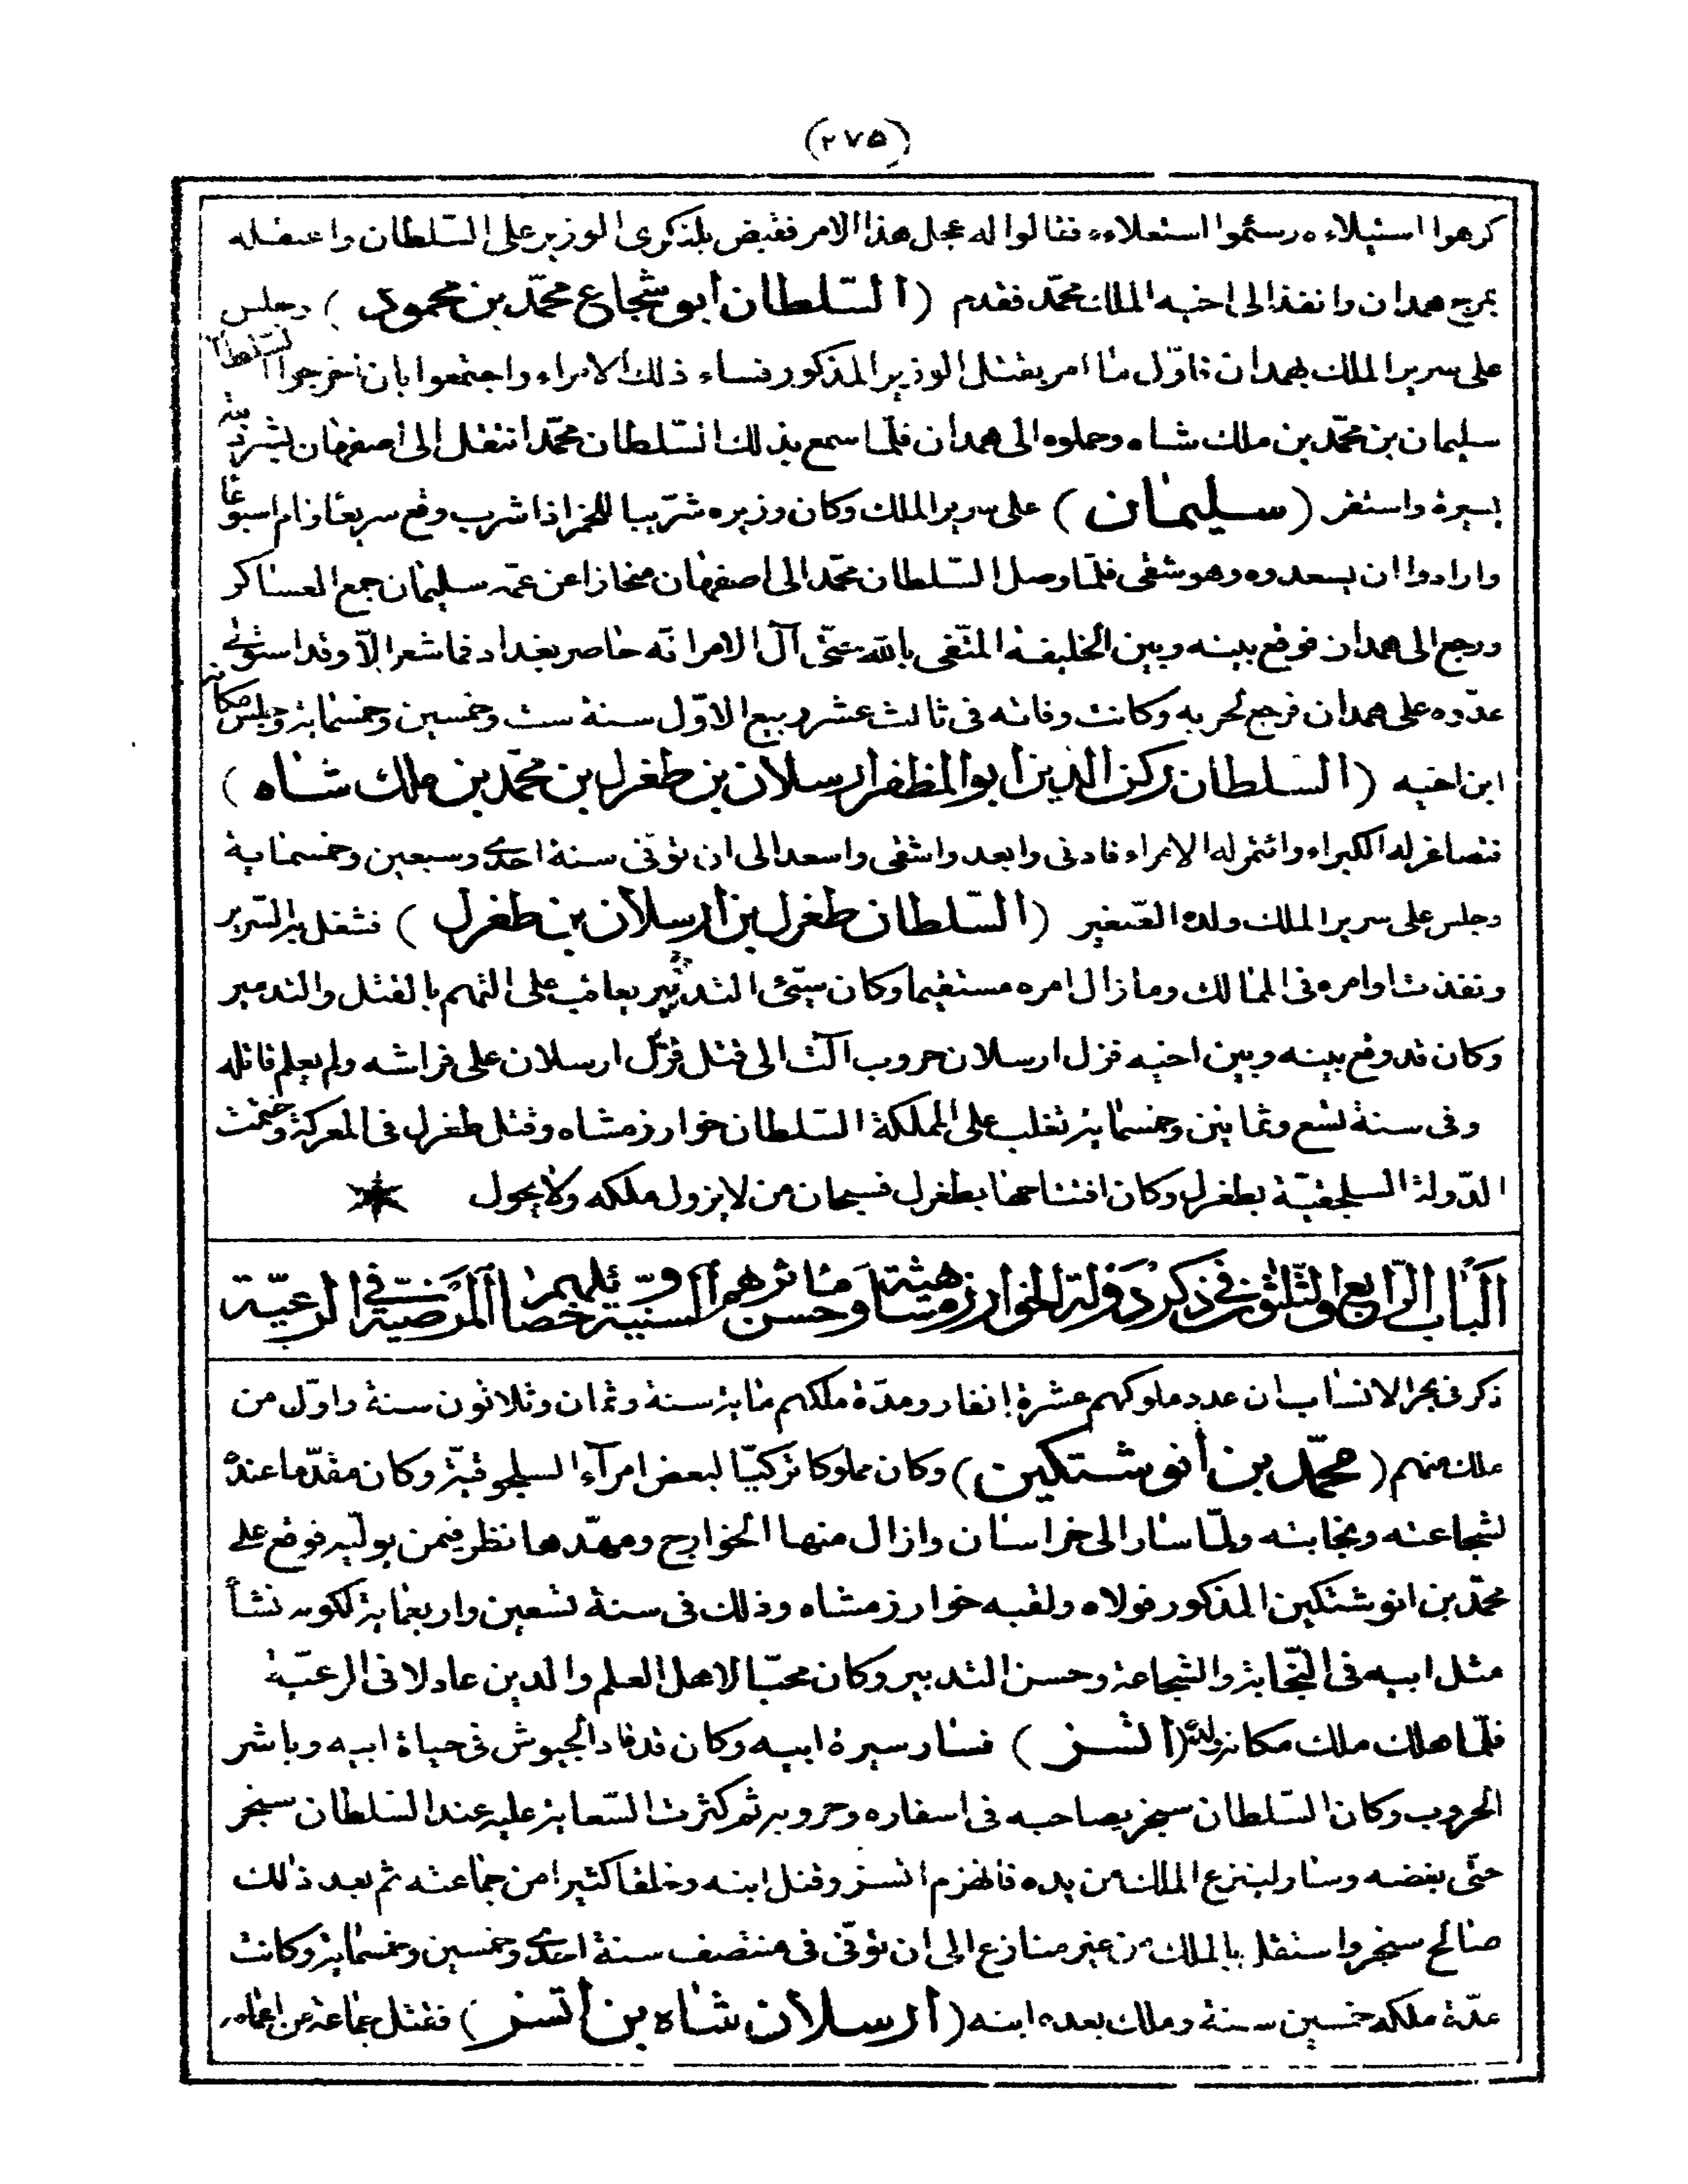 (٢٧٥)
كرهوا استيلاءه وسئموا استعلاءه فقالوا له عجل هذا الامر فقبض بلنكرى الوزير على السّلطان واعتقله
بمرج همدان وانفذ الى اخيه الملك محمّد فقدم (السّلطان ابو شجاع محمّد بن محمود) وجلس
على سرير الملك بهمدان فاوّل ما امر بقتل الوزير المذكور فساء ذلك الامراء واجتمعوا بان اخرجوا السّلطان
سليمان بن محمّد بن ملك شاه وحملوه الى همدان فلمّا سمع بذلك السّلطان محمّد انتقل الى اصفهان بشرذمة
يسيرة واستقر (سليمان) على سرير الملك وكان وزيره شرّيبا للخمر اذا شرب وقع سريعا ونام اسبوعا
وارادوا ان يسعدوه وهو شقى فلمّا وصل السّلطان محمّد الى اصفهان منحازا عن عمّه سليمان جمع العساكر
ورجع الى همدان فوقع بينه وبين الخليفة المتّقى بالله حتّى آل الامر انّه حاصر بغداد فما شعر الّا وقد استولى
عدّوه على همدان فرجع لحربه وكانت وفاته فى ثالث عشر ربيع الاوّل سنة ست وخمسين وخمسماية وجلس مكانه
ابن اخيه (السّلطان ركن الدين ابو المظفر ارسلان بن طغرل بن محمّد بن ملك شاه)
فتصاغر له الكبراء وائتمر له الامراء فادنى وابعد واشقى واسعد الى ان توفّى سنة احدى وسبعين وخمسماية
وجلس على سرير الملك ولده الصّغير (السّلطان طغرل بن ارسلان بن طغرل) فشغل به السّرير
ونفذت اوامره فى الممالك وما زال امره مستقيما وكان سيّئ التدبير يعاقب على التهم بالقتل والتدمير
وكان قد وقع بينه وبين اخيه قزل ارسلان حروب آلت الى قتل قزل ارسلان على فراشه ولم يعلم قاتله
وفى سنة تسع وثمانين وخمسماية تغلب على المملكة السّلطان خوارزمشاه وقتل طغرل فى المعركة وختمت
الدّولة السلجقيّة بطغرل وكان افتتاحها بطغرل فسبحان من لا يزول ملكه ولا يحول
الباب الرّابع والثّلثون فى ذكر دولة الخوارزمشاهيّة ومآثرهم السنية وحسن خصائلهم المرضيّة فى الرعيّة
ذكر فى بحر الانساب ان عدد ملوكهم عشرة انفار ومدّة ملكهم ماية سنة وثمان وثلاثون سنة واوّل من
ملك منهم (محمّد بن انوشتكين) وكان مملوكا تركيّا لبعض امرآء السلجوقيّة وكان مقدّما عنده
لشجاعته ونجابته ولمّا سار الى خراسان وازال منها الخوارج ومهّدها نظر فيمن يولّيه فوقع على
محمّد بن انوشتكين المذكور فولاه ولقبه خوارزمشاه وذلك فى سنة تسعين واربعماية لكونه نشأ
مثل ابيه فى النّجابة والشجاعة وحسن التدبير وكان محبّا لاهل العلم والدين عادلا فى الرعيّة
فلمّا هلك ملك مكانه ولده (اتسز) فسار سيرة ابيه وكان قد قاد الجيوش فى حياة ابيه وباشر
الحروب وكان السّلطان سنجر يصاحبه فى اسفاره وحروبه ثم كثرت السّعاية عليه عند السّلطان سنجر
حتّى بغضه وسار لينزع الملك من يده فانهزم اتسز وقتل ابنه وخلقا كثيرا من جماعته ثم بعد ذلك
صالح سنجر واستقل بالملك من غير منازع الى ان توفّى فى منتصف سنة احدى وخمسين وخمسماية وكانت
مدّة ملكه خمسين سنة وملك بعده ابنه (ارسلان شاه بن اتسز) فقتل جماعة من اعمامه